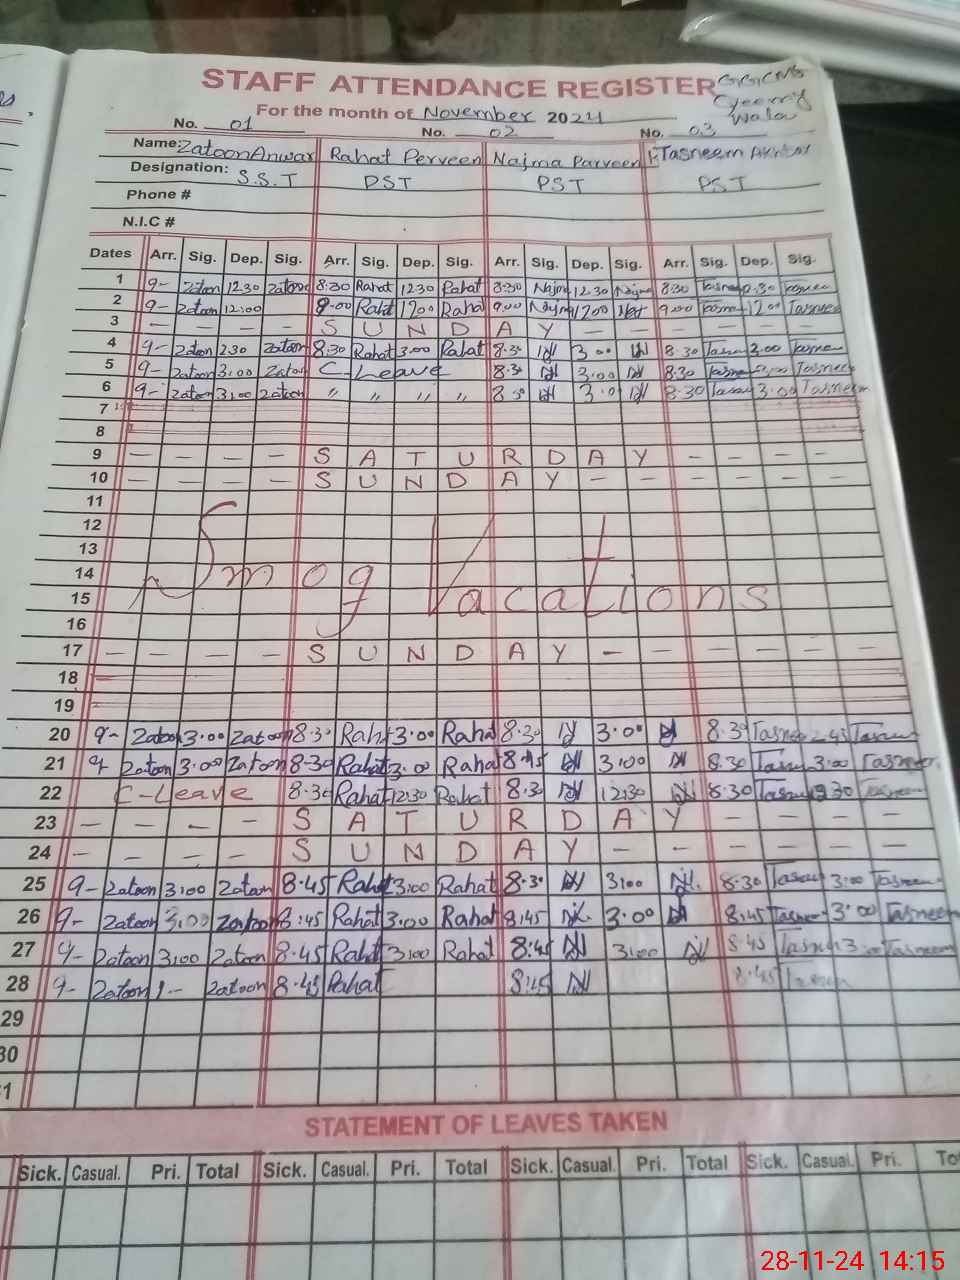 STAFF ATTENDANCE REGISTER
For the month of November 2024
Wala
No. 01 No. 02 No. 03
Name: Zatoon Anwar Rahat Perveen Najma Parveen Tasneem Akhtar
Designation: S.S.T PST PST PST
Phone #
N.I.C #
Dates Arr. Sig. Dep. Sig. Arr. Sig. Dep. Sig. Arr. Sig. Dep. Sig. Arr. Sig. Dep. Sig.
1 9- Zatoon 12 30 Zatoon 8:30 Rahat 12 30 Rahat 8:30 Najma 12 30 Najma 8:30 Tasneem 12.30 Tasneem
2 9- Zatoon 12:00 9:00 Rahat 12 00 Rahat 9:00 Najma 12 00 9:00 Tasneem 12 00 Tasneem
3 - - - - S U N D A Y - - - - - -
4 9- Zatoon 2:30 Zatoon 8.30 Rahat 3.00 Rahat 8.30 3.00 8.30 Tasneem 3.00 Tasneem
5 9- Zatoon 3,00 Zatoon C-Leave 8.30 3:00 8.30 Tasneem 3:00 Tasneem
6 9- Zatoon 3,00 Zatoon " " " " 8.30 3.00 8.30 Tasneem 3:00 Tasneem
7
8
9 - - - - S A T U R D A Y - - - -
10 - - - - S U N D A Y - - - - - -
11
12
13
14
Smog Vacations
15
16
17 - - - - S U N D A Y - - - - - -
18
19
20 9- Zatoon 3.00 Zatoon 8.30 Rahat 3.00 Rahat 8.30 3.00 8.30 Tasneem 2.45 Tasneem
21 9- Zatoon 3.00 Zatoon 8.30 Rahat 3.00 Rahat 8.45 3:00 8.30 Tasneem 3:00 Tasneem
22 C-Leave 8.30 Rahat 12:30 Rahat 8.30 12:30 8.30 Tasneem 12 30 Tasneem
23 - - - - S A T U R D A Y - - - -
24 - - - - S U N D A Y - - - - - -
25 9- Zatoon 3,00 Zatoon 8.45 Rahat 3:00 Rahat 8.30 3:00 8.30 Tasneem 3:00 Tasneem
26 9- Zatoon 3,00 Zatoon 8.45 Rahat 3.00 Rahat 8.45 3.00 8.45 Tasneem 3.00 Tasneem
27 9- Zatoon 3,00 Zatoon 8.45 Rahat 3,00 Rahat 8.45 3:00 8.45 Tasneem 3.00 Tasneem
28 9- Zatoon 1- Zatoon 8.45 Rahat 8:45 8.45 Tasneem
29
30
STATEMENT OF LEAVES TAKEN
Sick. Casual. Pri. Total Sick. Casual. Pri. Total Sick. Casual. Pri. Total Sick. Casual. Pri.
28-11-24 14:15